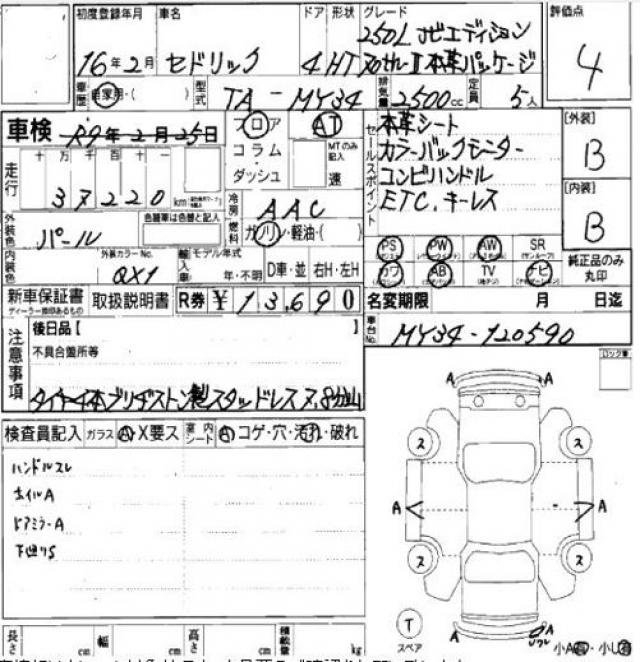 初度登録年月 車名 ドア 形状 グレード 評価点
16年2月 セドリック 4 HT 250L ナビエディション
本革パッケージ
4
車歴 自家用・( ) 型式 TA-MY34 排気量 2500cc 定員 5人
車検 R9年2月25日
フロア AT
コラム MTのみ記入
ダッシュ 速
セールスポイント
本革シート
カラーバックモニター
コンビハンドル
ETC.キーレス
[外装]
B
[内装]
B
走行 十万千百十一
37220 km
冷房 AAC
燃料 ガソリン・軽油・( )
外装色 パール
色替車は色替と記入
内装色 外装カラーNo. QX1
輸入車 モデル年式 年・不明 D車・並 右H・左H
PS PW AW SR
(サンルーフ)
カワ AB TV ナビ
純正品のみ丸印
新車保証書 取扱説明書 R券 ¥13,690
ディーラー捺印あるもの
名変期限 月 日迄
車台No. MY34-120590
注意事項
後日品【
不具合箇所等
タイヤ4本ブリヂストン製スタッドレス 7.8分山
検査員記入 ガラス A・X要ス 室内シート A コゲ・穴・汚れ・破れ
ハンドルスレ
ホイルA
ドアミラーA
下廻りS
A A
ス ス
A A
ス ス
T
スペア
A
小A有・小U有
長さ cm 幅 cm 高さ cm 積載量 kg